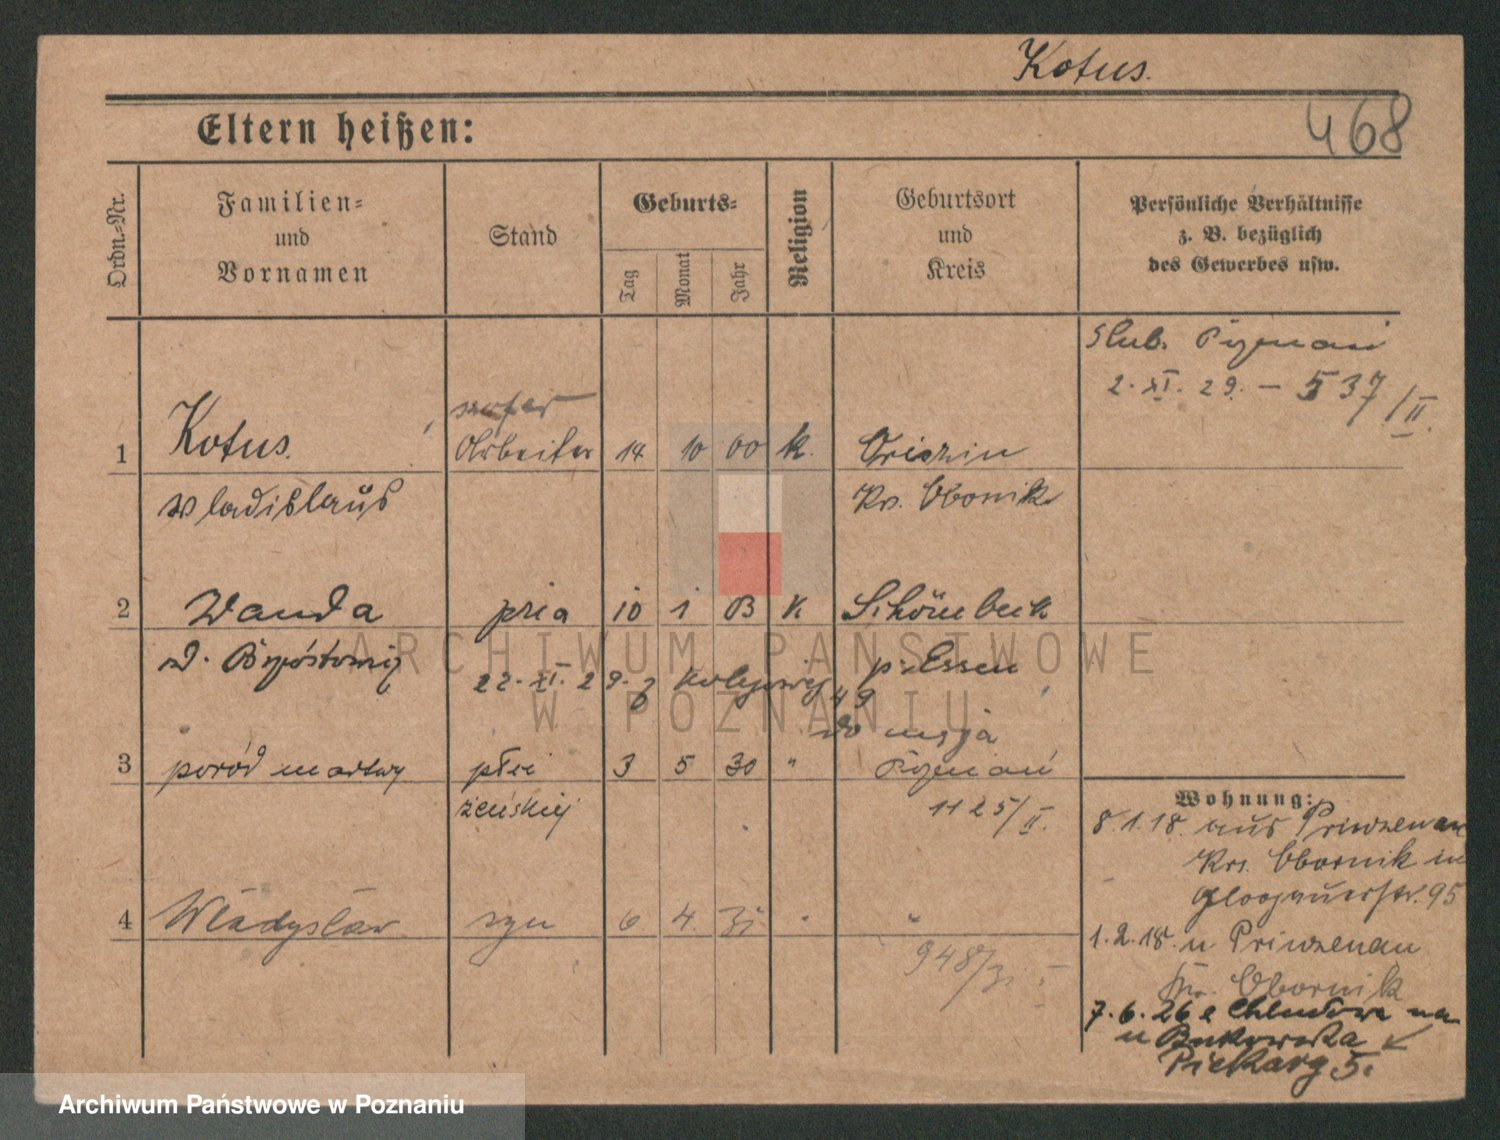 Kotus.
468
Eltern heißen:
Ordn.-Nr.
Familien-
und
Vornamen
Stand
Geburts-
Tag
Monat
Jahr
Religion
Geburtsort
und
Kreis
Persönliche Verhältnisse
z. B. bezüglich
des Gewerbes usw.
ślub. Poznań
2. XI. 29. — 537/II.
szofer
1 Kotus. Arbeiter 14 10 00 k.
Wladislaus Kr. Obornik
2 Wanda 10 1 K Schönebeck
p. Essen
22. XI. 29. Kolejowej 49
3 poród martwy płci 3 5 30 " Poznań
żeńskiej 1125/II.
4 Władysław syn 6 4. 31 " "
948/31 I
Wohnung:
8.1.18. aus Priwzenau
Krs. Obornik in
Glogauerstr. 95
1.2.18. n Priwzenau
Kr. Obornik
7.6.26 z Chludowa na
Bukowska
Piekary 5.
ARCHIWUM PAŃSTWOWE
W POZNANIU
Archiwum Państwowe w Poznaniu